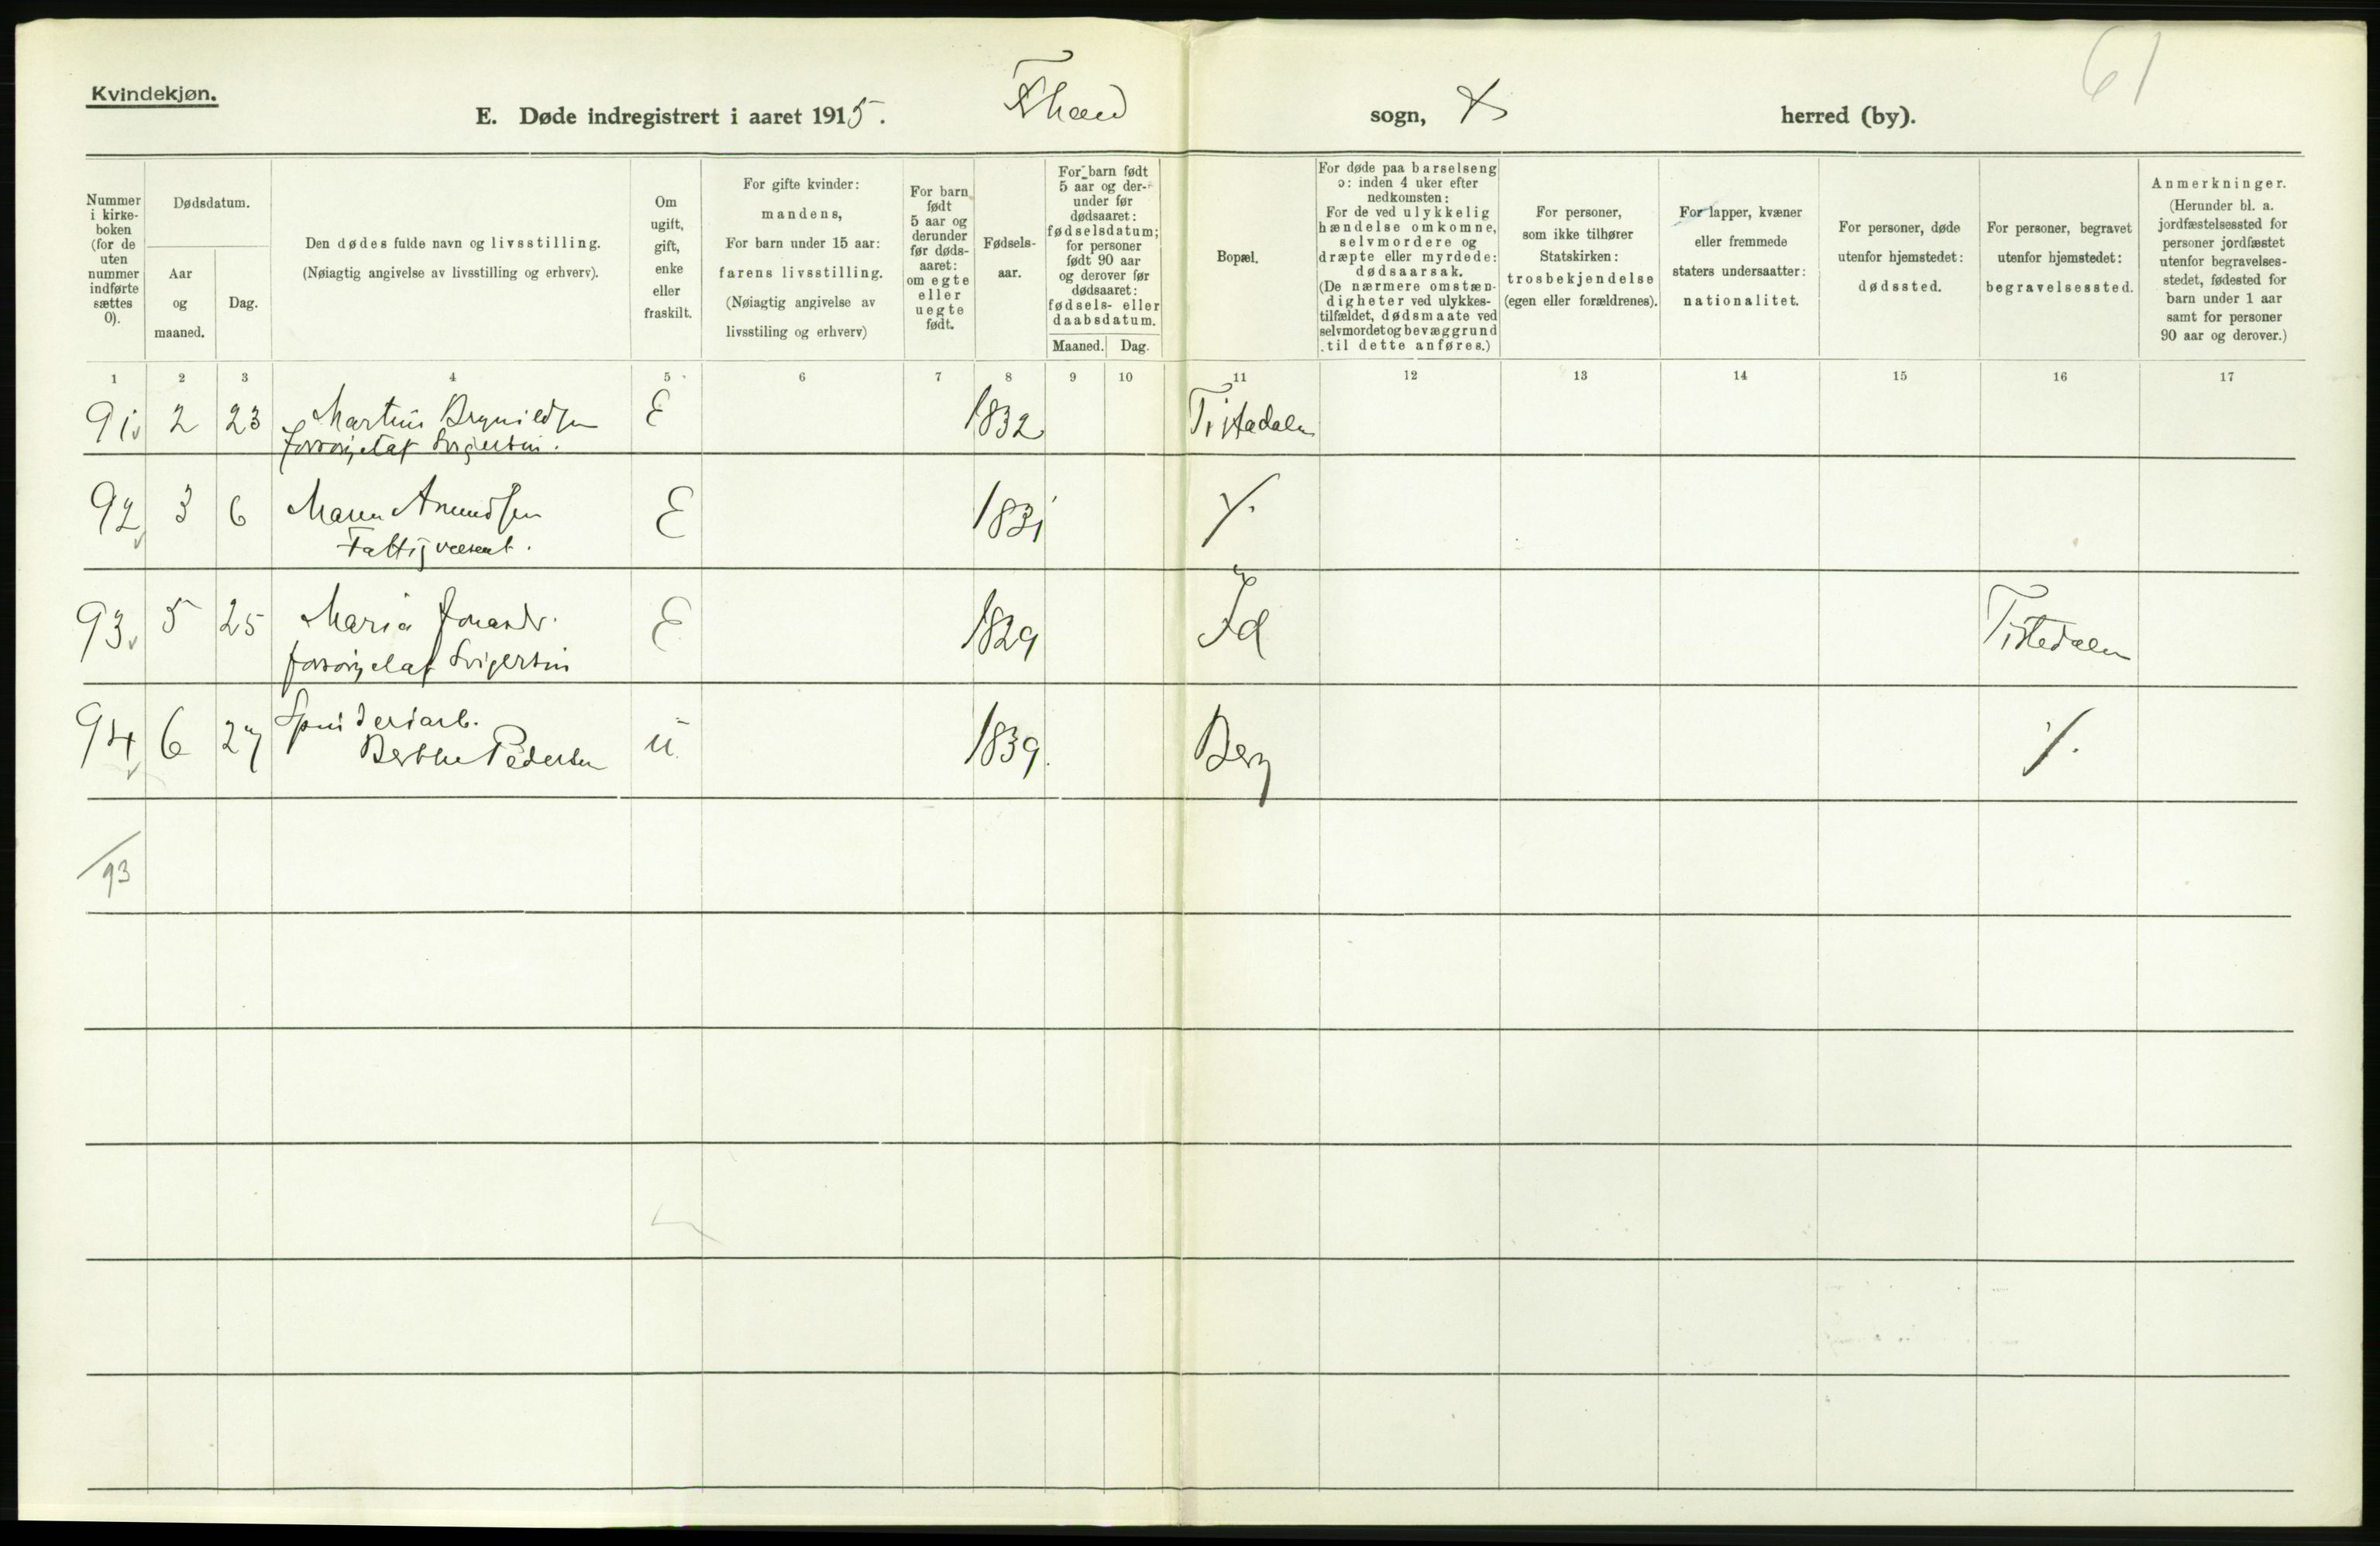 Kvindekjøn.
61
E. Døde indregistrert i aaret 1915. Fhald sogn, herred (by).
Nummer
i kirke-
boken
(for de
uten
nummer
indførte
sættes
0).
Dødsdatum.
Aar
og
maaned.
Dag.
Den dødes fulde navn og livsstilling.
(Nøiagtig angivelse av livsstilling og erhverv).
Om
ugift,
gift,
enke
eller
fraskilt.
For gifte kvinder:
mandens,
For barn under 15 aar:
farens livsstilling.
(Nøiagtig angivelse av
livsstiling og erhverv)
For barn
født
5 aar og
derunder
før døds-
aaret:
om egte
eller
uegte
født.
Fødsels-
aar.
For barn født
5 aar og der-
under før
dødsaaret:
fødselsdatum;
for personer
født 90 aar
og derover før
dødsaaret:
fødsels- eller
daabsdatum.
Maaned. Dag.
Bopæl.
For døde paa barselseng
ɔ: inden 4 uker efter
nedkomsten:
For de ved ulykkelig
hændelse omkomne,
selvmordere og
dræpte eller myrdede:
dødsaarsak.
(De nærmere omstæn-
digheter ved ulykkes-
tilfældet, dødsmaate ved
selvmordet og bevæggrund
til dette anføres.)
For personer,
som ikke tilhører
Statskirken:
trosbekjendelse
(egen eller forældrenes).
For lapper, kvæner
eller fremmede
staters undersaatter:
nationalitet.
For personer, døde
utenfor hjemstedet:
dødssted.
For personer, begravet
utenfor hjemstedet:
begravelsessted.
Anmerkninger.
(Herunder bl. a.
jordfæstelsessted for
personer jordfæstet
utenfor begravelses-
stedet, fødested for
barn under 1 aar
samt for personer
90 aar og derover.)
1 2 3 4 5 6 7 8 9 10 11 12 13 14 15 16 17
91 2 23 Martine Brynildsen E 1832 Tistedalen
forsørjet af Svigersøn.
92 3 6 Maren Amundsen E 1831 ⁒
Fattigvæsent.
93. 5 25 Maria Jonasdr. E 1829 Id Tistedalen
forsørjet af Svigersøn
94 6 27 Spinderiarb. u. 1839. Berg ⁒
Berthe Pedersen
93